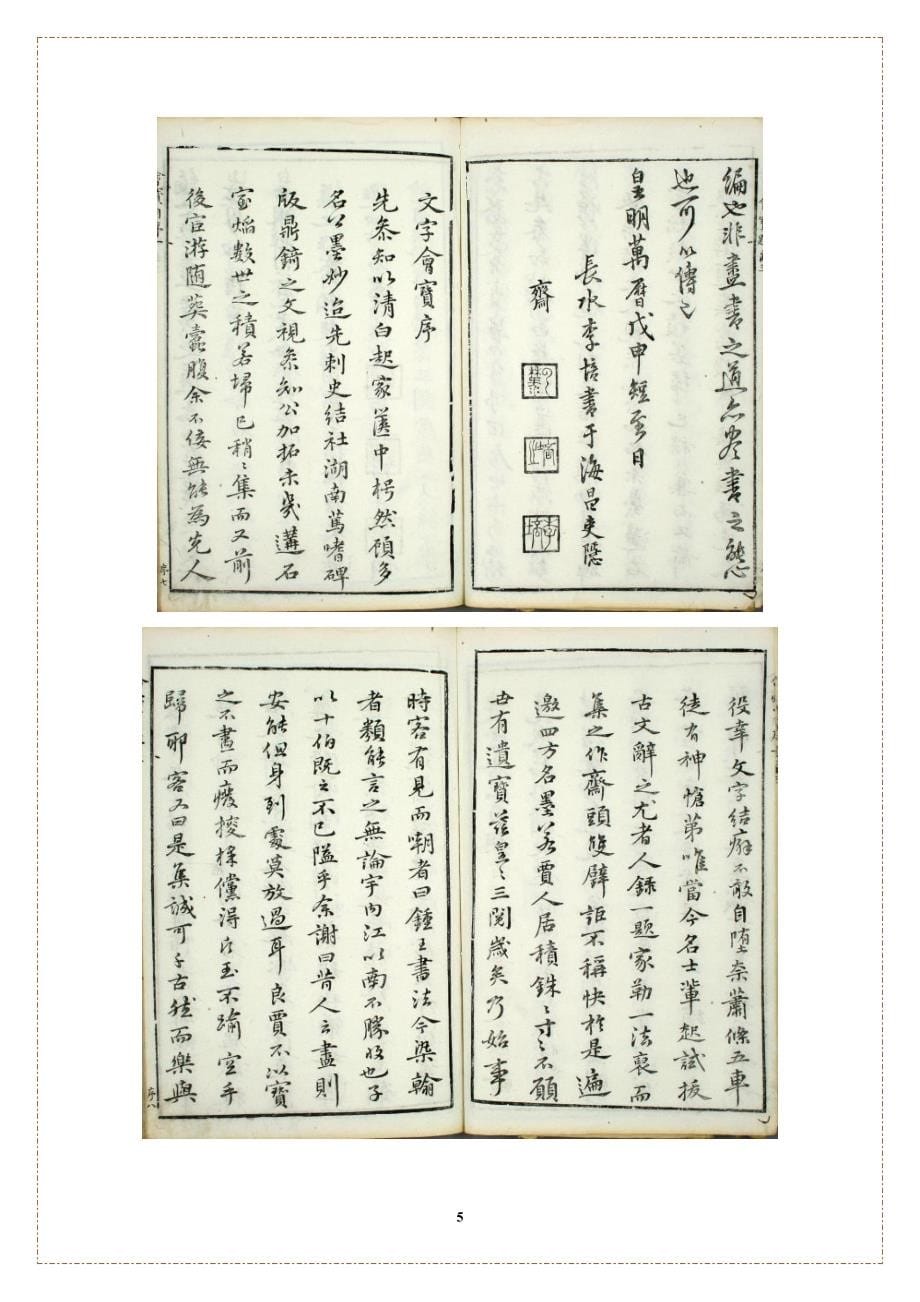 編也非盡書之道亦盡書之態
也可以傳已
皇明萬曆戊申短至日
長水李培書于海昌吏隱
齋
文字會寶序
先叅知以清白起家篋中枵然顧多
名公墨妙迨先刺史結社湖南篤嗜碑
版鼎錡之文視叅知公加拓未幾遘石
室焰數世之積若埽已稍〻集而又前
後宦游随葬蠹腹余不佞無能為先人
序七
役幸文字結癖不敢自堕柰蕭條五車
徒有神愴第唯當今名士輩起試拔
古文辭之尤者人錄一題家勒一法裒而
集之作齋頭雙璧詎不稱快於是遍
邀四方名墨若賈人居積銖〻寸〻不願
世有遺寶茲皇〻三閱歲矣乃始事
時客有見而嘲者曰鍾王書法今染翰
者類能言之無論宇內江以南不勝收也子
以十伯既之不已隘乎余謝曰昔人云盡則
安能但身到處莫放過耳良賈不以寶
之不盡而癈掞採儻得尺玉不踰空手
歸耶客又曰是集誠可千古然而樂與
序八
5